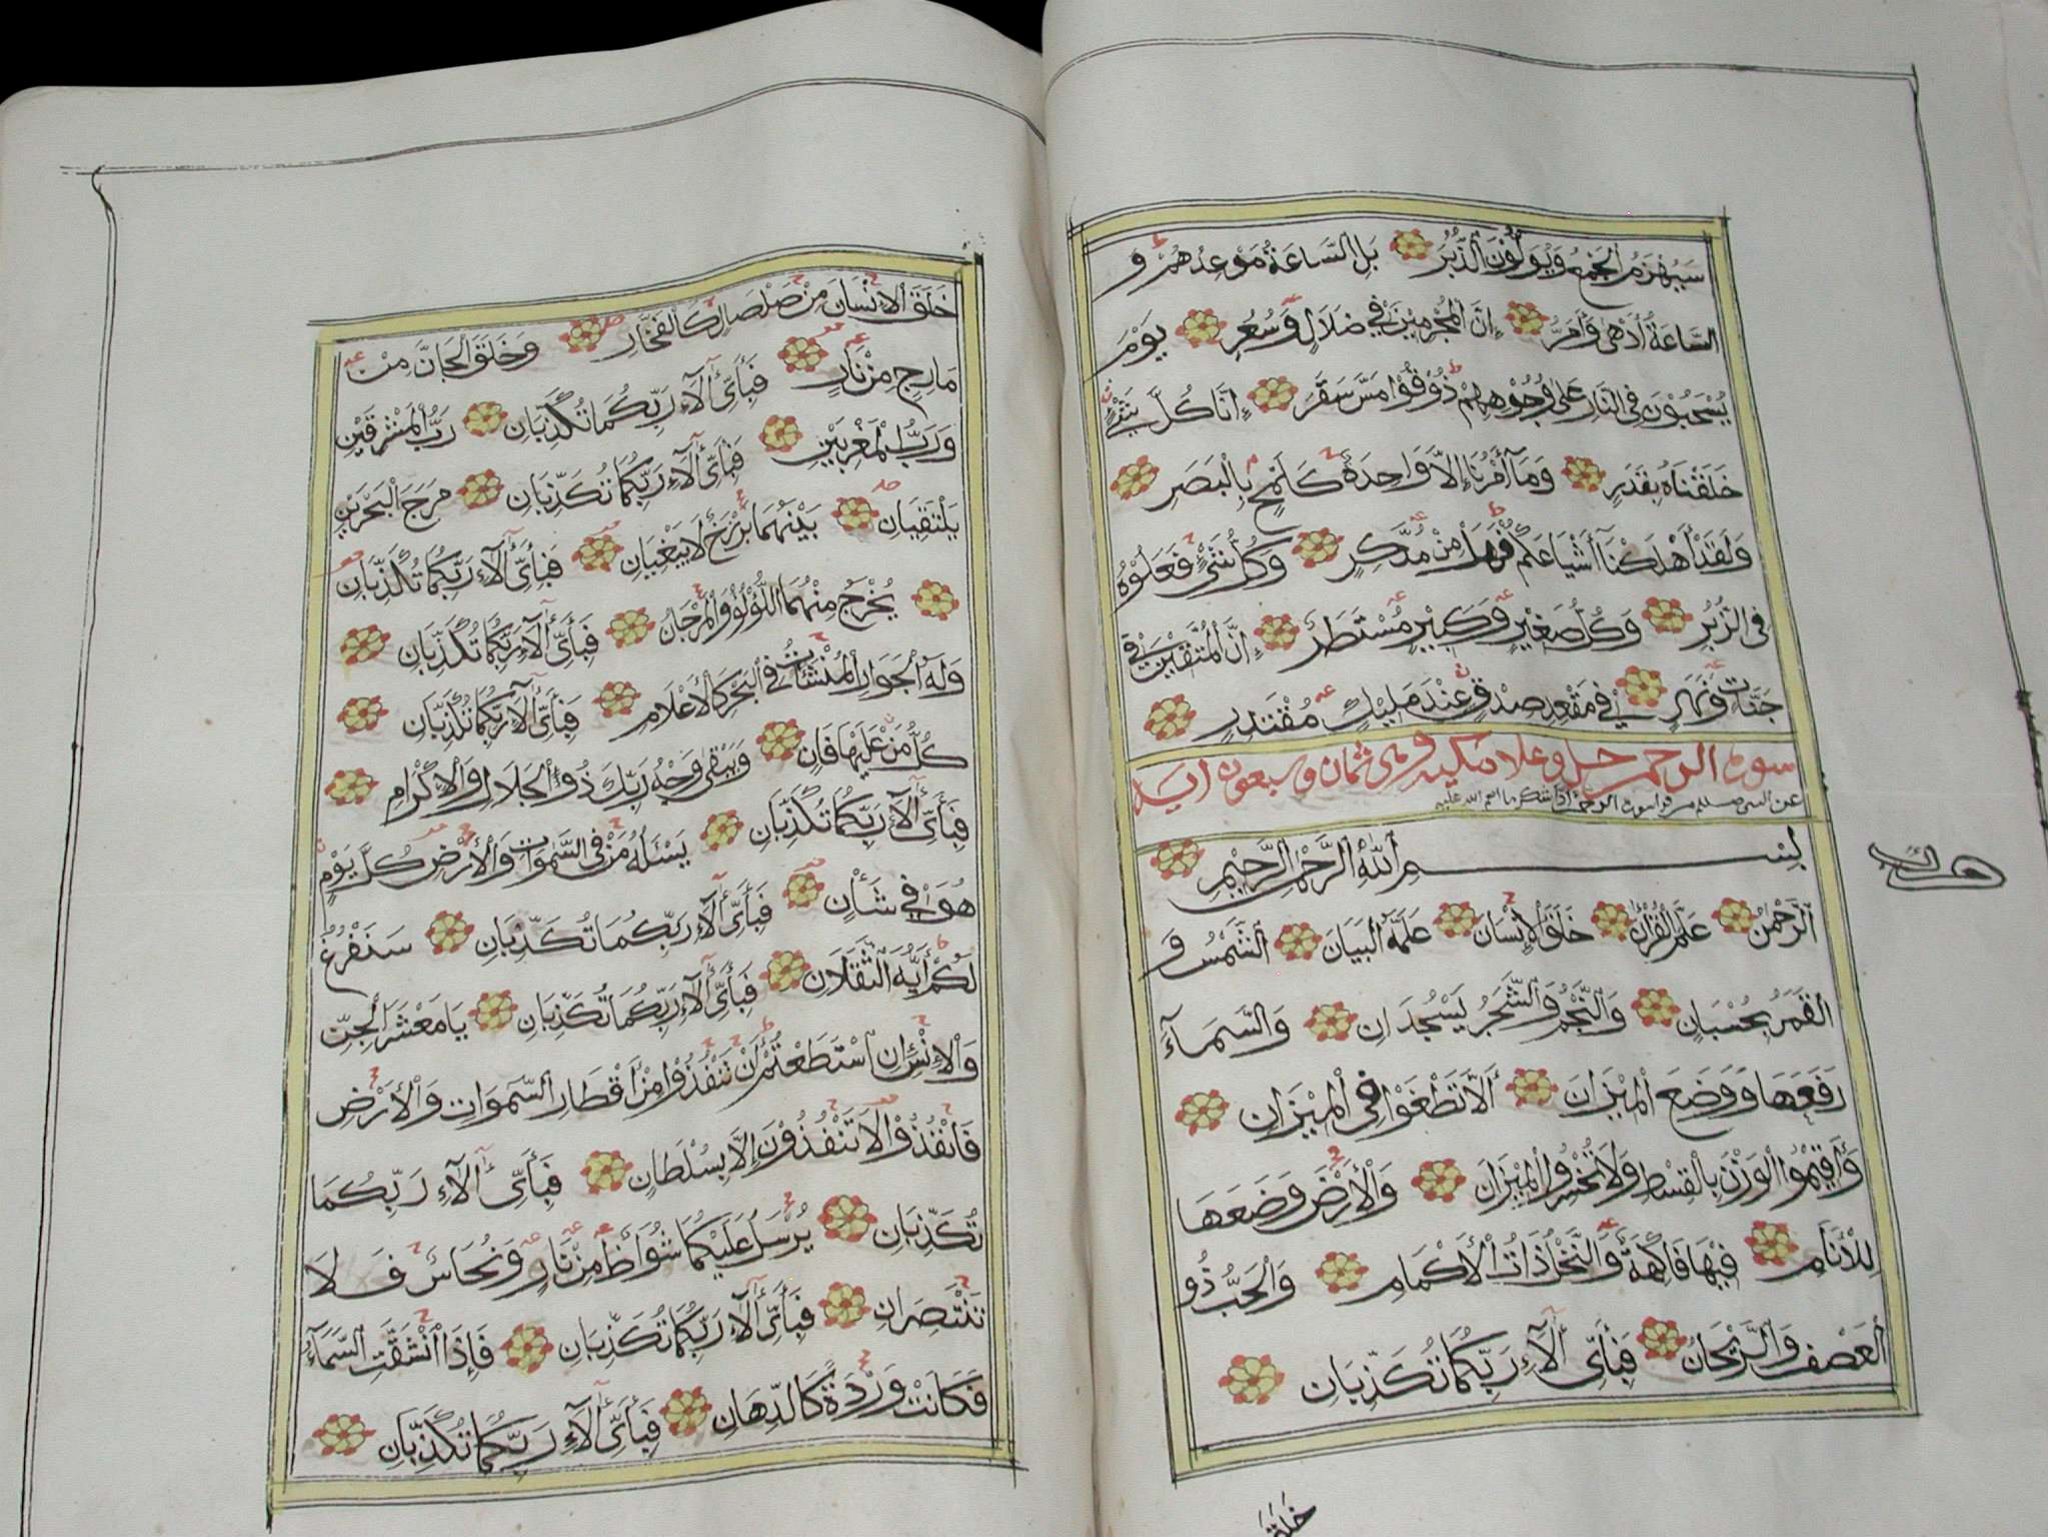 سَيُهْزَمُ الْجَمْعُ وَيُوَلُّونَ الدُّبُرَ بَلِ السَّاعَةُ مَوْعِدُهُمْ وَ
السَّاعَةُ أَدْهَى وَأَمَرُّ إِنَّ الْمُجْرِمِيْنَ فِي ضَلَالٍ وَسُعُرٍ يَوْمَ
يُسْحَبُوْنَ فِى النَّارِ عَلَى وُجُوْهِهِمْ ذُوْقُوْا مَسَّ سَقَرَ إِنَّا كُلَّ شَيْءٍ
خَلَقْنَاهُ بِقَدَرٍ وَمَا أَمْرُنَا إِلَّا وَاحِدَةٌ كَلَمْحٍ بِالْبَصَرِ
وَلَقَدْ أَهْلَكْنَا أَشْيَاعَكُمْ فَهَلْ مِنْ مُدَّكِرٍ وَكُلُّ شَيْءٍ فَعَلُوْهُ
فِى الزُّبُرِ وَكُلُّ صَغِيْرٍ وَكَبِيْرٍ مُسْتَطَرٌ إِنَّ الْمُتَّقِيْنَ فِي
جَنَّاتٍ وَنَهَرٍ فِي مَقْعَدِ صِدْقٍ عِنْدَ مَلِيْكٍ مُقْتَدِرٍ
سورة الرحمن جل وعلا مكية وهي ثمان وسبعون اية
عن النبي صلعم من قرا سورة الرحمن ادا شكر ما انعم الله عليه
بِسْمِ اللَّهِ الرَّحْمَنِ الرَّحِيْمِ
الرَّحْمَنُ عَلَّمَ الْقُرْآنَ خَلَقَ الْإِنْسَانَ عَلَّمَهُ الْبَيَانَ الشَّمْسُ وَ
الْقَمَرُ بِحُسْبَانٍ وَالنَّجْمُ وَالشَّجَرُ يَسْجُدَانِ وَالسَّمَآءَ
رَفَعَهَا وَوَضَعَ الْمِيْزَانَ أَلَّا تَطْغَوْا فِي الْمِيْزَانِ
وَأَقِيْمُوا الْوَزْنَ بِالْقِسْطِ وَلَا تُخْسِرُوا الْمِيْزَانَ وَالْأَرْضَ وَضَعَهَا
لِلْأَنَامِ فِيْهَا فَاكِهَةٌ وَالنَّخْلُ ذَاتُ الْأَكْمَامِ وَالْحَبُّ ذُو
الْعَصْفِ وَالرَّيْحَانُ فَبِأَيِّ آلَاءِ رَبِّكُمَا تُكَذِّبَانِ
خلق
خَلَقَ الْإِنْسَانَ مِنْ صَلْصَالٍ كَالْفَخَّارِ وَخَلَقَ الْجَانَّ مِنْ
مَارِجٍ مِنْ نَارٍ فَبِأَيِّ آلَاءِ رَبِّكُمَا تُكَذِّبَانِ رَبُّ الْمَشْرِقَيْنِ
وَرَبُّ الْمَغْرِبَيْنِ فَبِأَيِّ آلَاءِ رَبِّكُمَا تُكَذِّبَانِ مَرَجَ الْبَحْرَيْنِ
يَلْتَقِيَانِ بَيْنَهُمَا بَرْزَخٌ لَا يَبْغِيَانِ فَبِأَيِّ آلَاءِ رَبِّكُمَا تُكَذِّبَانِ
يُخْرَجُ مِنْهُمَا اللُّؤْلُؤُ وَالْمَرْجَانُ فَبِأَيِّ آلَاءِ رَبِّكُمَا تُكَذِّبَانِ
وَلَهُ الْجَوَارِ الْمُنْشَآتُ فِي الْبَحْرِ كَالْأَعْلَامِ فَبِأَيِّ آلَاءِ رَبِّكُمَا تُكَذِّبَانِ
كُلُّ مَنْ عَلَيْهَا فَانٍ وَيَبْقَى وَجْهُ رَبِّكَ ذُو الْجَلَالِ وَالْإِكْرَامِ
فَبِأَيِّ آلَاءِ رَبِّكُمَا تُكَذِّبَانِ يَسْئَلُهُ مَنْ فِى السَّمَوَاتِ وَالْأَرْضِ كُلَّ يَوْمٍ
هُوَ فِي شَأْنٍ فَبِأَيِّ آلَاءِ رَبِّكُمَا تُكَذِّبَانِ سَنَفْرُغُ
لَكُمْ أَيُّهَ الثَّقَلَانِ فَبِأَيِّ آلَاءِ رَبِّكُمَا تُكَذِّبَانِ يَا مَعْشَرَ الْجِنِّ
وَالْإِنْسِ إِنِ اسْتَطَعْتُمْ أَنْ تَنْفُذُوْا مِنْ أَقْطَارِ السَّمَوَاتِ وَالْأَرْضِ
فَانْفُذُوْا لَا تَنْفُذُوْنَ إِلَّا بِسُلْطَانٍ فَبِأَيِّ آلَاءِ رَبِّكُمَا
تُكَذِّبَانِ يُرْسَلُ عَلَيْكُمَا شُوَاظٌ مِنْ نَارٍ وَنُحَاسٌ فَلَا
تَنْتَصِرَانِ فَبِأَيِّ آلَاءِ رَبِّكُمَا تُكَذِّبَانِ فَإِذَا انْشَقَّتِ السَّمَآءُ
فَكَانَتْ وَرْدَةً كَالدِّهَانِ فَبِأَيِّ آلَاءِ رَبِّكُمَا تُكَذِّبَانِ